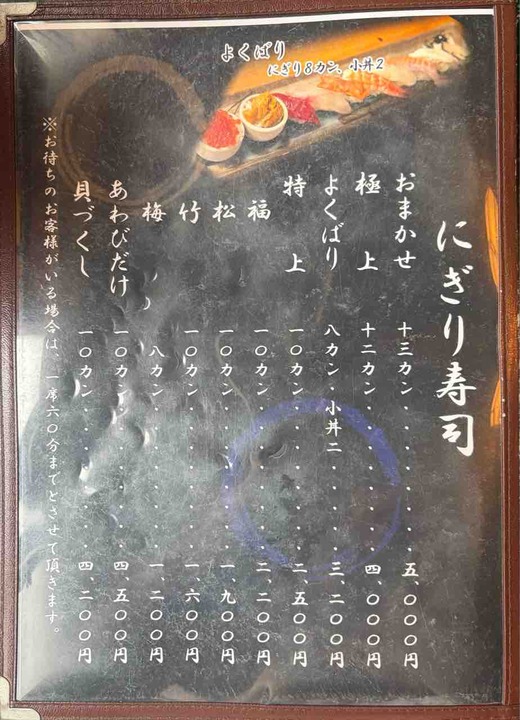 よくばり
にぎり8カン、小丼2
にぎり寿司
おまかせ 十三カン・・・・・・・五、〇〇〇円
極上 十二カン・・・・・・・四、〇〇〇円
よくばり 八カン・小丼二・・・・三、二〇〇円
特上 一〇カン・・・・・・・二、五〇〇円
福 一〇カン・・・・・・・二、二〇〇円
松 一〇カン・・・・・・・一、九〇〇円
竹 一〇カン・・・・・・・一、六〇〇円
梅 八カン・・・・・・・一、二〇〇円
あわびだけ 一〇カン・・・・・・・四、五〇〇円
貝づくし 一〇カン・・・・・・・四、二〇〇円
※お待ちのお客様がいる場合は、一席六〇分までとさせて頂きます。